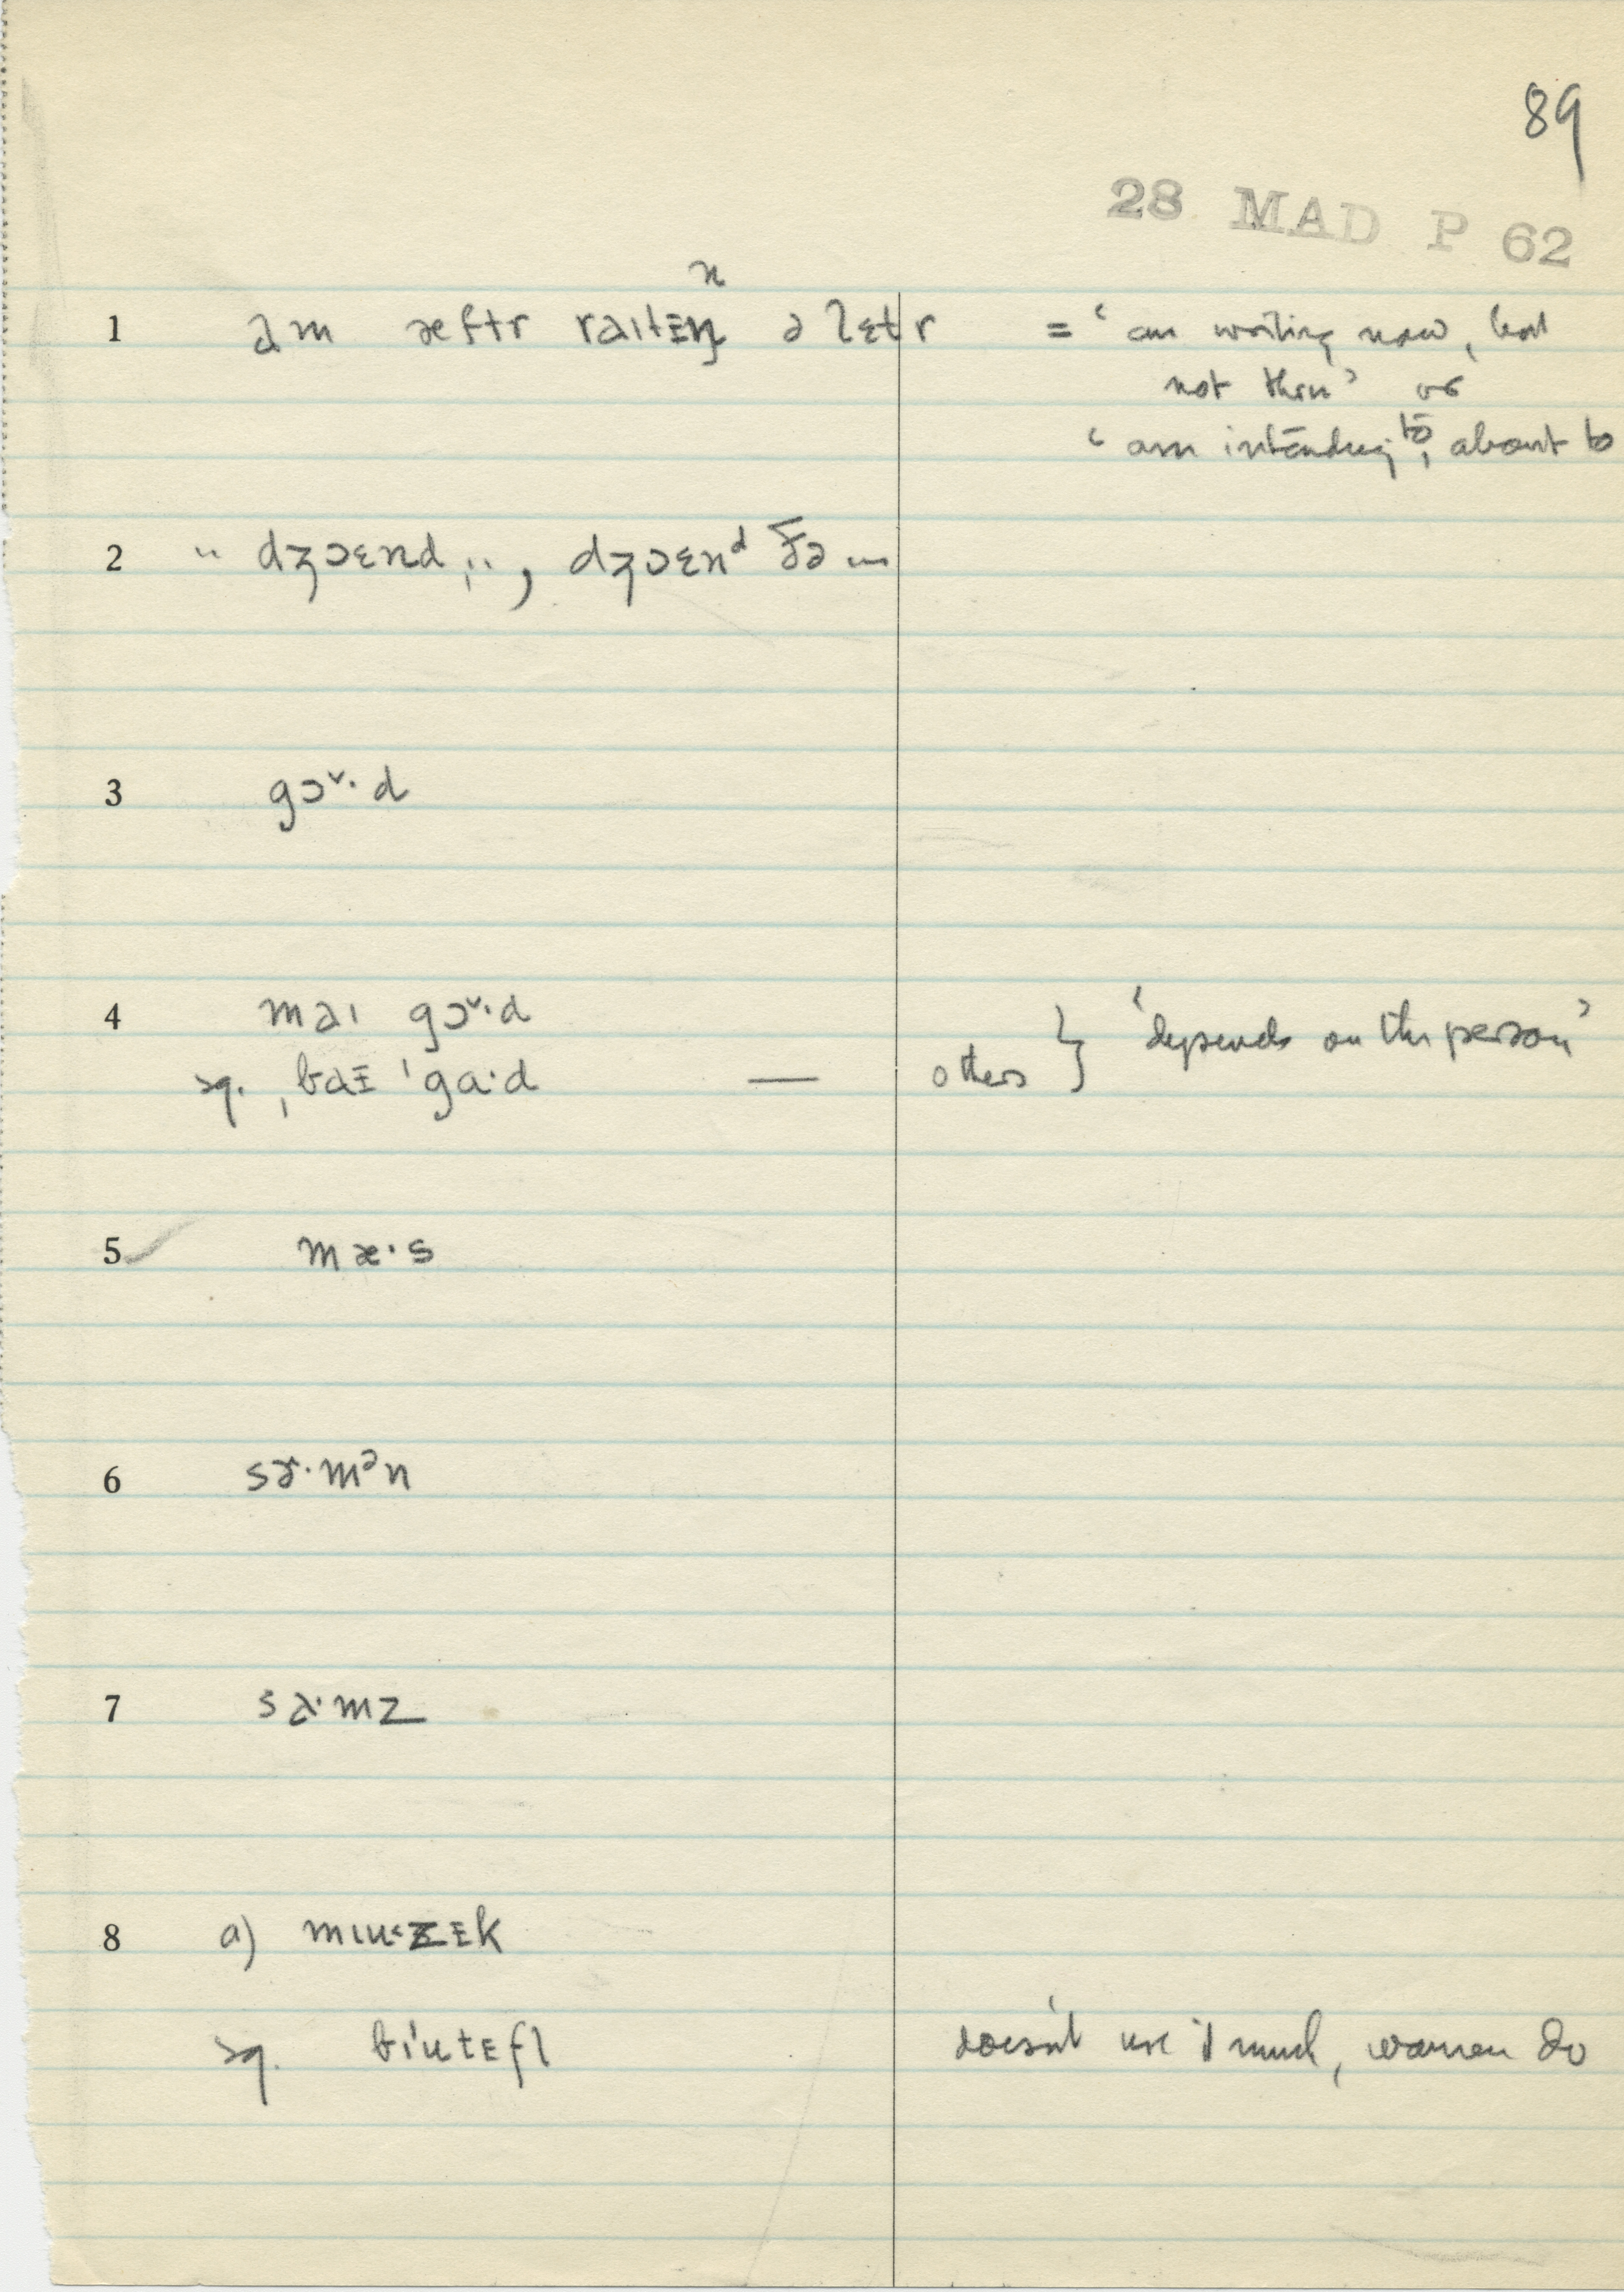 89
28 MAD P 62
1 əm æftr raɪtᴇn ə lɛtr = ‘am writing now, but
not thru’ or
‘am intending to, about to
2 " dʒɔɛnd ", dʒɔɛnᵈ ðə
3 gɔˇ·d
4 maɪ gɔˇ·d
sq. ˌbaᴇ ˈgɑ·d — others } ‘depends on the person’
5 mæ·s
6 sɚ·mᵊn
7 sa·mz
8 a) mɪuzᴇk
sq. biutᴇfl doesn't use it much, women do